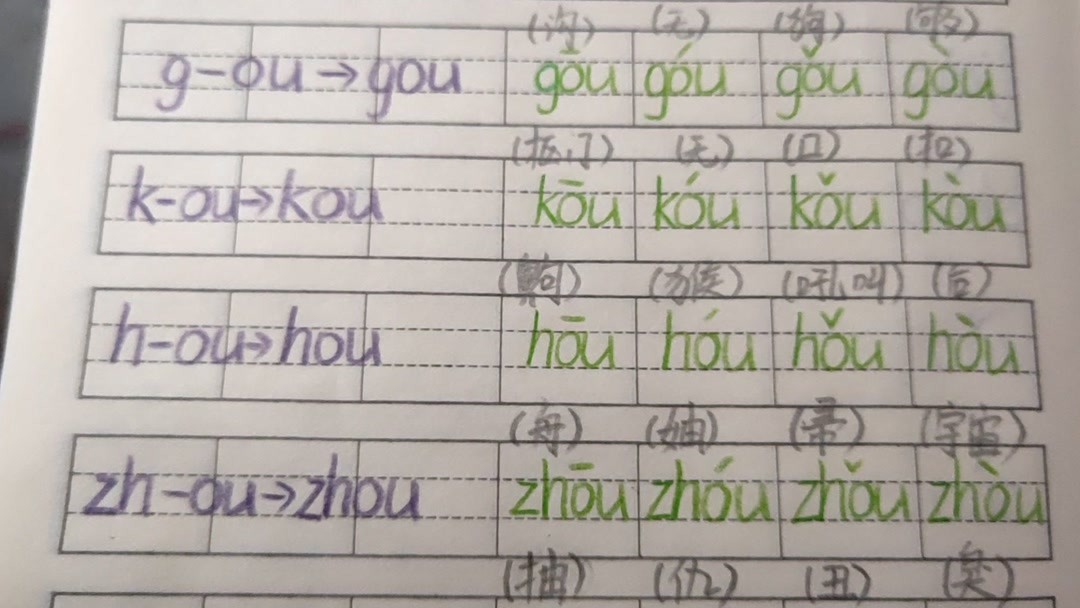 (沟) (无) (狗) (够)
g-ou→gou gōu góu gǒu gòu
(抠门) (无) (口) (扣)
k-ou→kou kōu kóu kǒu kòu
(齁) (猴) (吼叫) (后)
h-ou→hou hōu hóu hǒu hòu
(舟) (妯) (帚) (宇宙)
zh-ou→zhou zhōu zhóu zhǒu zhòu
(抽) (仇) (丑) (臭)